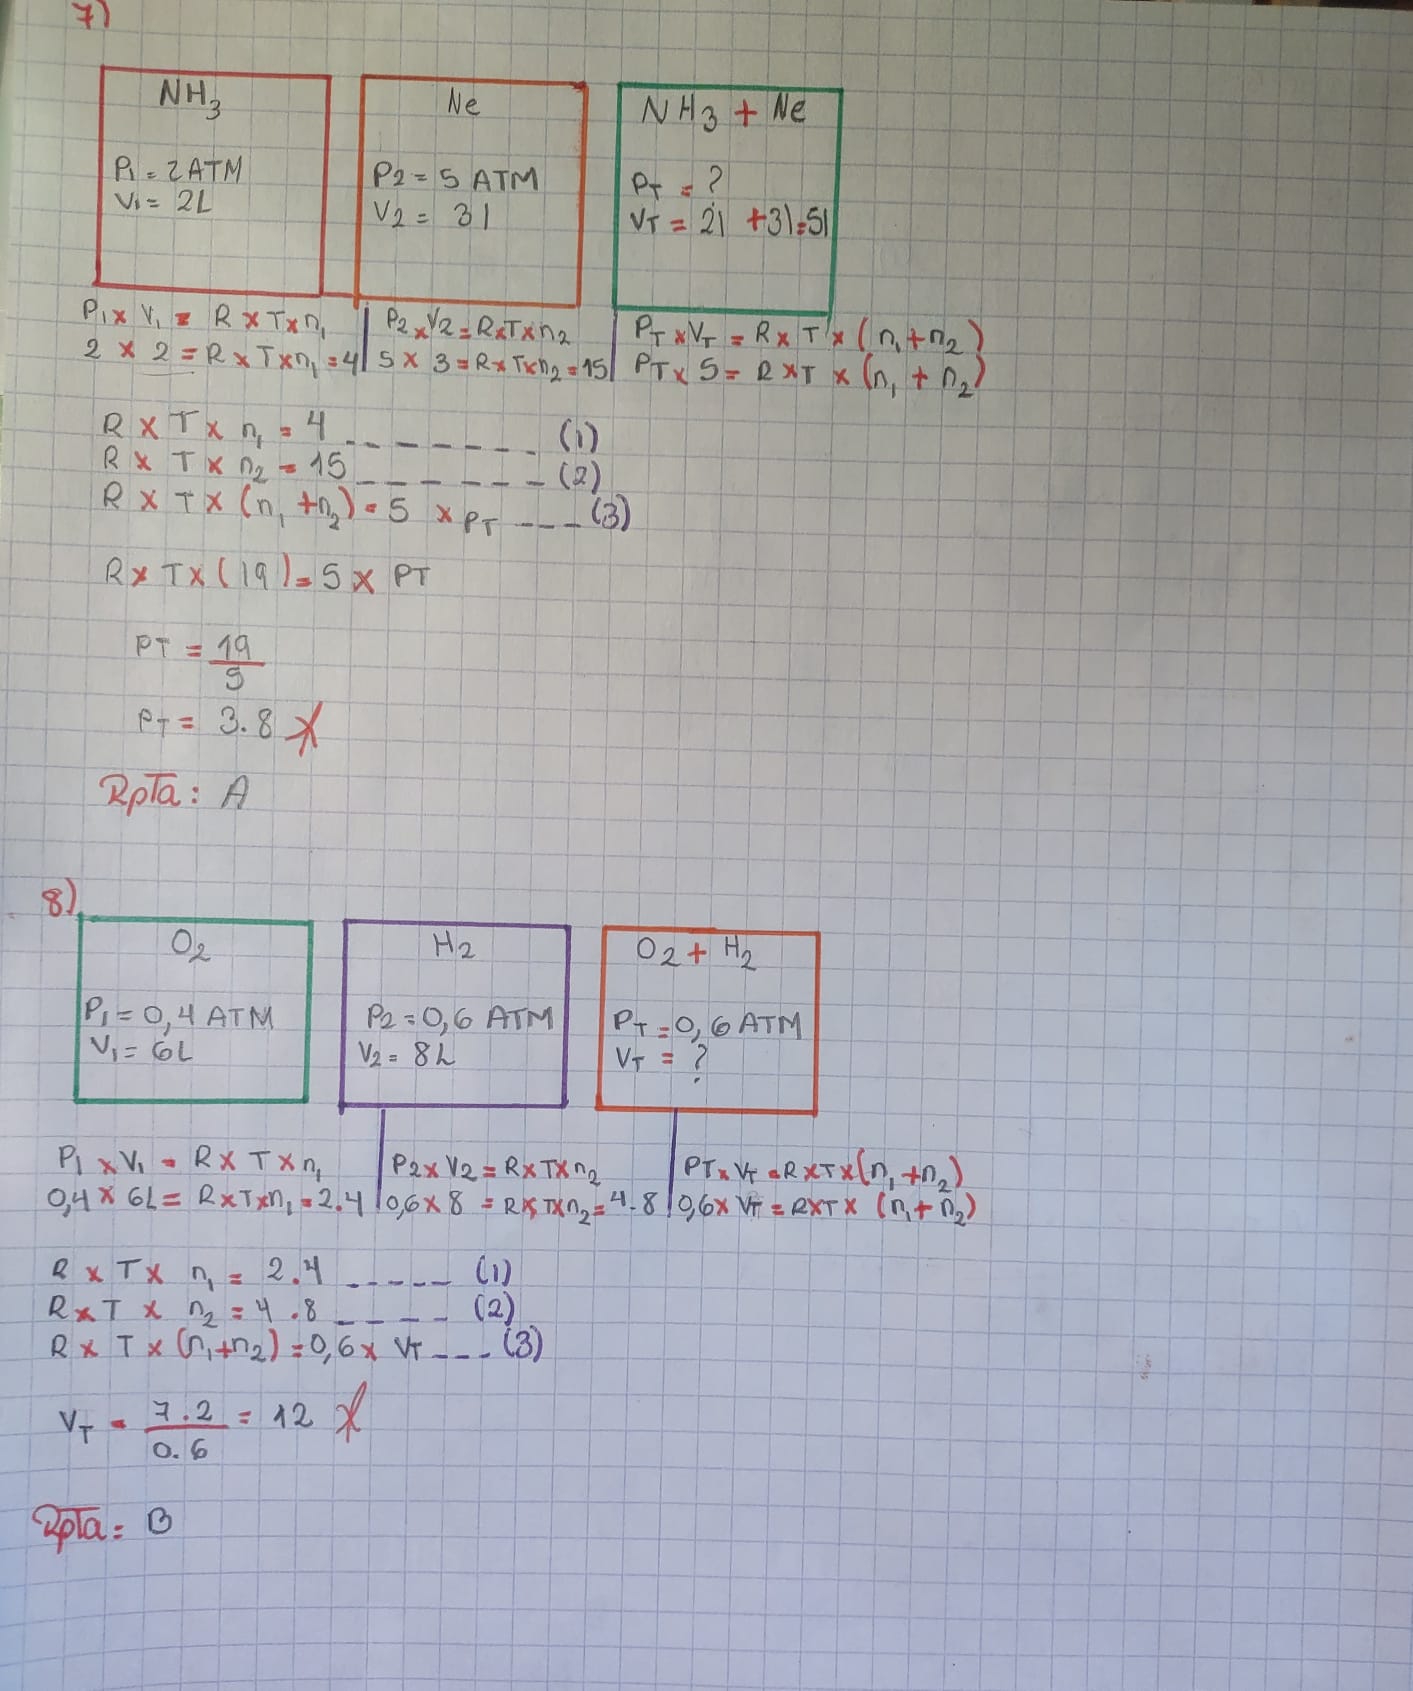 7)
NH3
P1 = 2 ATM
V1 = 2L
Ne
P2 = 5 ATM
V2 = 3l
NH3 + Ne
PT = ?
VT = 2l + 3l = 5l
P1 x V1 = R x T x n1
2 x 2 = R x T x n1 = 4
P2 x V2 = R x T x n2
5 x 3 = R x T x n2 = 15
PT x VT = R x T x (n1 + n2)
PT x 5 = R x T x (n1 + n2)
R x T x n1 = 4 _ _ _ _ _ _ _ (1)
R x T x n2 = 15 _ _ _ _ _ _ (2)
R x T x (n1 + n2) = 5 x PT _ _ _ (3)
R x T x (19) = 5 x PT
PT = 19/5
PT = 3.8
Rpta: A
8)
O2
P1 = 0,4 ATM
V1 = 6L
H2
P2 = 0,6 ATM
V2 = 8L
O2 + H2
PT = 0,6 ATM
VT = ?
P1 x V1 = R x T x n1
0,4 x 6L = R x T x n1 = 2.4
P2 x V2 = R x T x n2
0,6 x 8 = R x T x n2 = 4.8
PT x VT = R x T x (n1 + n2)
0,6 x VT = R x T x (n1 + n2)
R x T x n1 = 2.4 _ _ _ _ _ (1)
R x T x n2 = 4.8 _ _ _ _ (2)
R x T x (n1 + n2) = 0,6 x VT _ _ _ (3)
VT = 7.2/0.6 = 12
Rpta = B